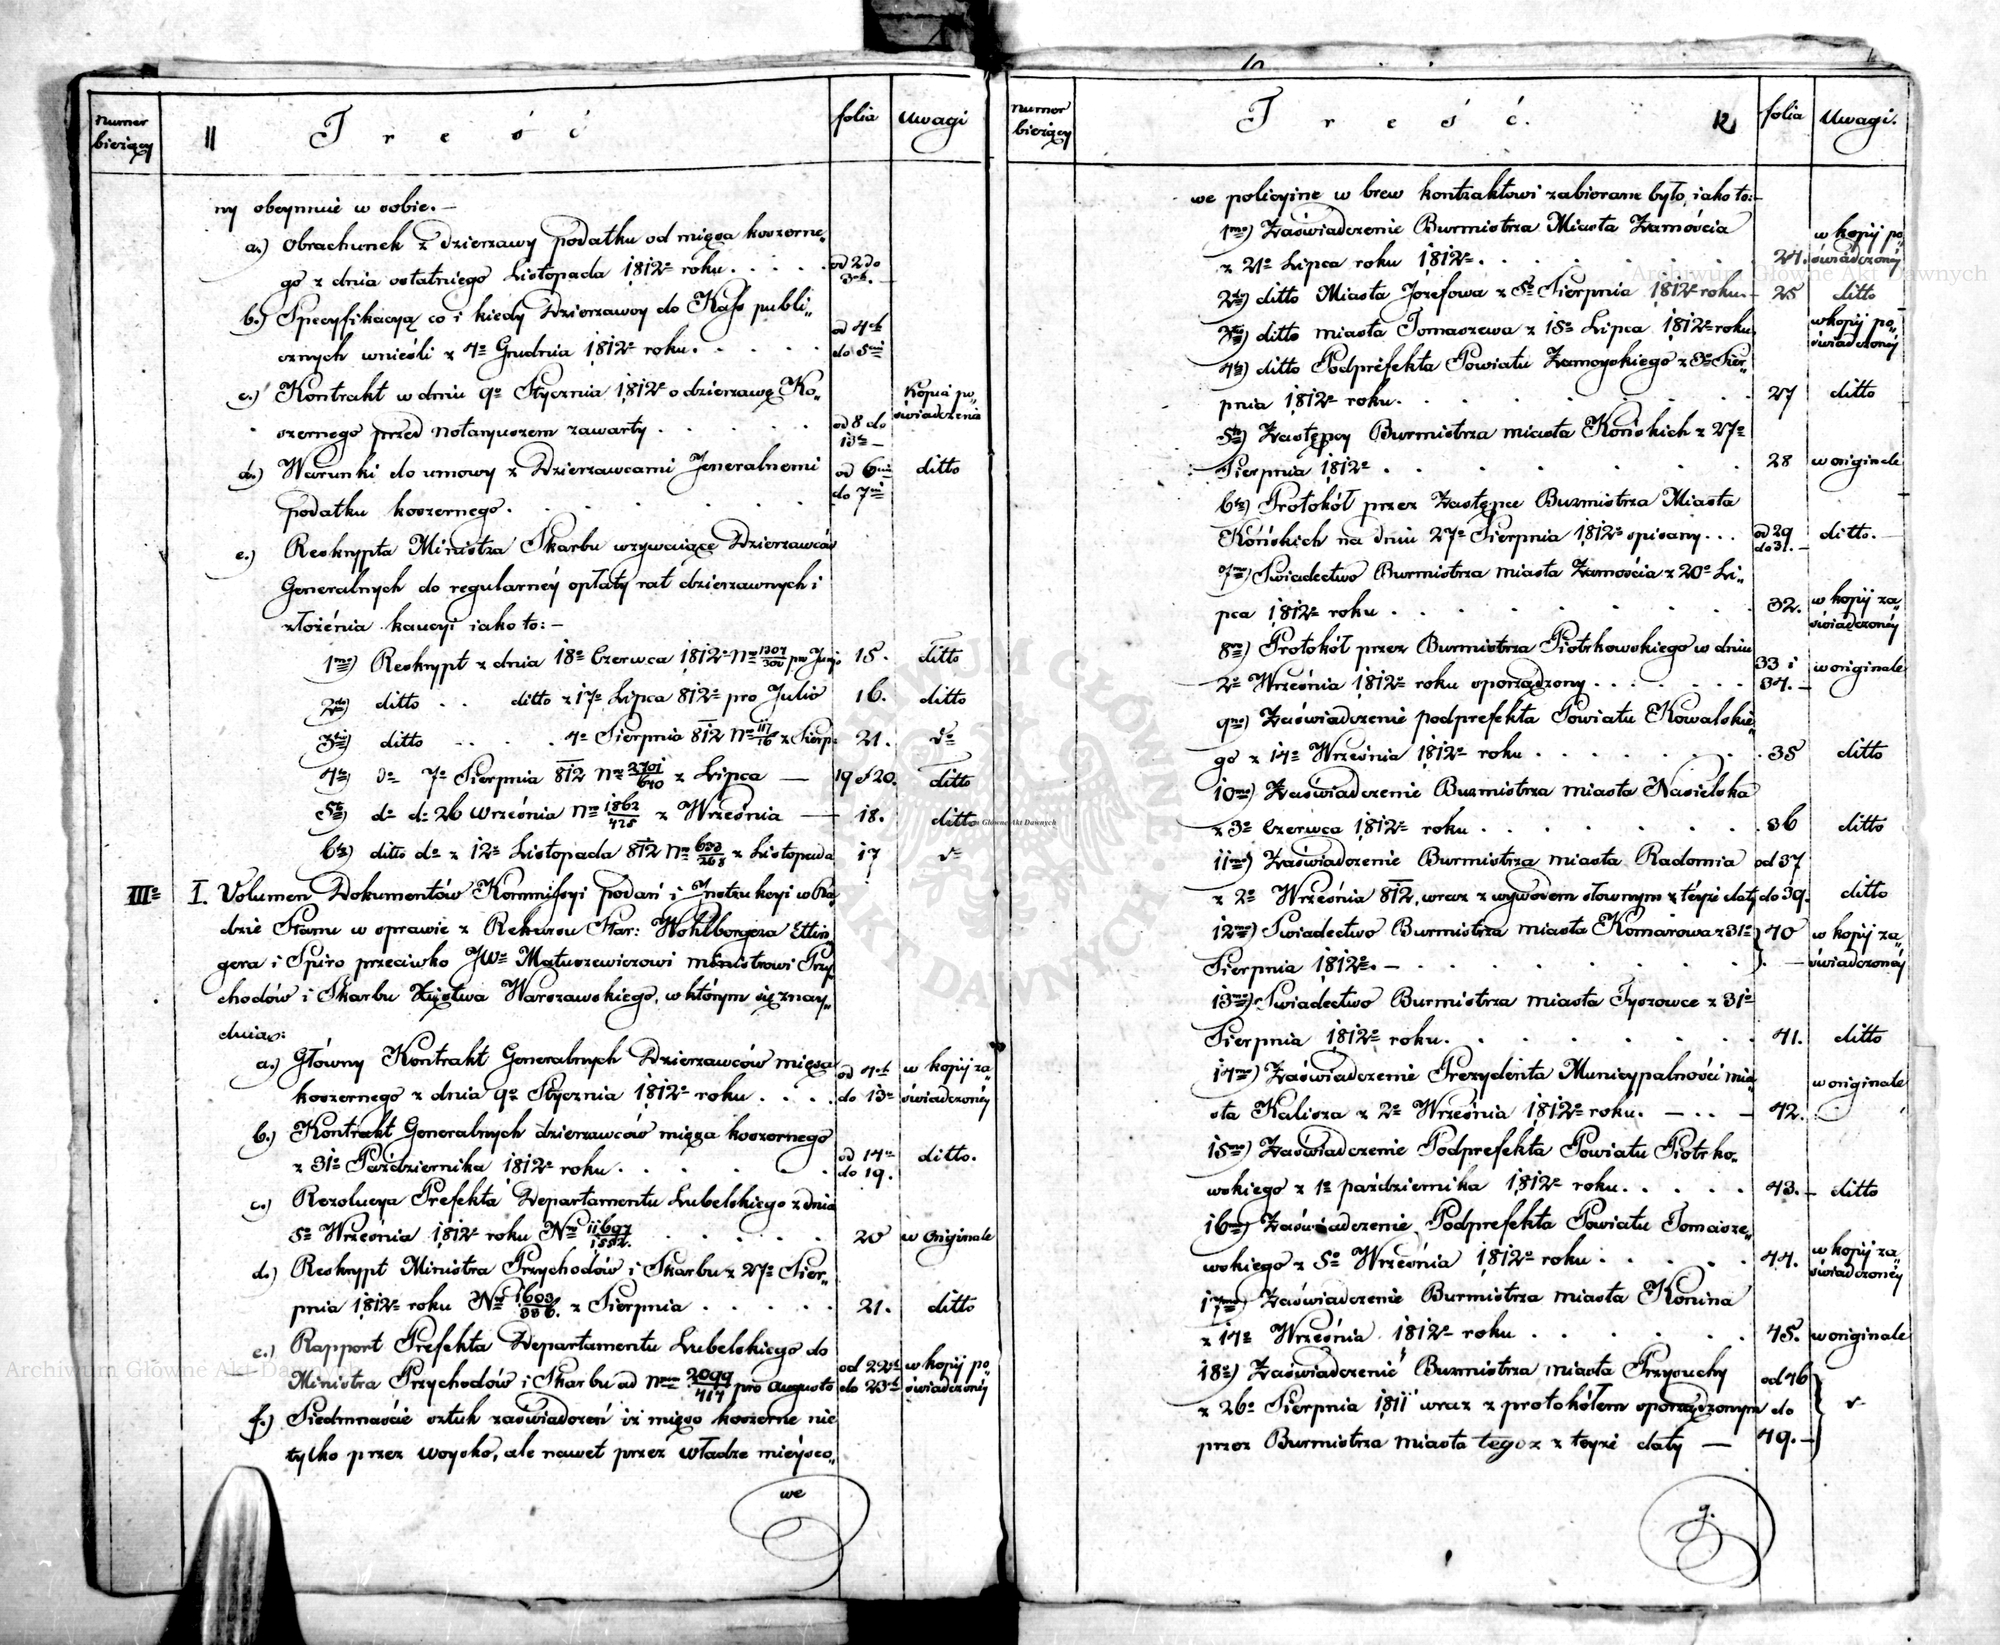 numer bieżący 11 Treść folia Uwagi
ny obeymuie w sobie. —
a.) Obrachunek z dzierzawy podatku od mięsa koszerne„
go z dnia ostatniego Listopada 1812º roku . . . . . od 2 do 3º —
b.) Specyfikacya co i kiedy Dzierzawcy do Kass publi„
cznych wnieśli z 4º Grudnia 1812º roku. . . . . od 4º do 5
c.) Kontrakt w dniu 9º Stycznia 1812 o dzierzawę Ko„ Kopia po„
szernego przed notaryuszem zawarty . . . . . od 8 do 13º — świadczenia
d.) Warunki do umowy z Dzierzawcami Jeneralnemi od 6 ditto
podatku koszernego. . . . . . do 7
e.) Reskrypta Ministra Skarbu wzywaiące Dzierzawców
Generalnych do regularnéy opłaty rat dzierzawnych i
złożénia kaucyi iako to: —
1mo) Reskrypt z dnia 18º Czerwca 1812º Nro 1207/300 pro Junio 15. ditto
2do) ditto . . ditto z 17º Lipca 812º pro Julio 16. ditto
3tio) ditto . . . . 4º Sierpnia 812 Nro 117/16 z Sierp: 21. dº
4to) dº 7º Sierpnia 812 Nro 2701/640 z Lipca — 19 & 20. ditto
5to) dº dº 26 Września Nro 1862/425 z Września — 18. ditto
6to) ditto dº z 12º Listopada 812 Nro 633/268 z Listopada 17 dº
IIIº I. Volumen Dokumentów Kommissyi podań i Instrukcyi w Ra„
dzie Stanu w sprawie z Rekursu Star: Wohlborgera Ettin„
gera i Spiro przeciwko JWº Matuszewiczowi ministrowi Przy„
chodów i Skarbu Xięstwa Warszawskiego, w którym się znay„
duias:
a.) Główny Kontrakt Generalnych Dzierzawców mięsa od 4º w kopii za„
koszernego z dnia 9º Stycznia 1812º roku . . . . do 13º świadczonéy
b.) Kontrakt Generalnych dzierzawców mięsa koszernego
z 31º Października 1812º roku . . . . . . od 14º do 19. ditto.
c.) Rezolucya Prefekta Departamentu Lubelskiego z dnia
5º Września 1812º roku Nro 11697/1552. . . . . . 20 w Originale
d.) Reskrypt Ministra Przychodów i Skarbu z 27º Sier„
pnia 1812º roku Nro 1603/386. z Sierpnia . . . . . 21. ditto
e.) Rapport Prefekta Departamentu Lubelskiego do od 22 w kopij po„
Ministra Przychodów i Skarbu ad Num 2099/414 pro Augusto do 23 świadczonéy
f.) Siedmnaście sztuk zaświadczeń iż mięso koszerne nie
tylko przez woysko, ale nawet przez władze mieysco„
we
numer bieżący Treść. 12 folia Uwagi.
we policyine w brew kontraktowi zabierane było, iako to: —
1mo) Zaświadczenie Burmistrza Miasta Zamościa w kopij po„
z 21º Lipca roku 1812º . . . . . . . 24. świadczonéy
2do) ditto Miasta Jozefowa z 5º Sierpnia 1812º roku. — 25 ditto
3tio) ditto miasta Tomaszewa z 15º Lipca 1812º roku w kopij po„ świadczonéy
4to) ditto Podprefekta Powiatu Zamoyskiego z 3º Sier„
pnia 1812º roku. . . . . . . . 27 ditto
5to) Zastępcy Burmistrza miasta Końskich z 27º
Sierpnia 1812º . . . . . . . 28 w originale
6to) Protokół przez Zastępce Burmistrza Miasta
Końskich na dniu 27º Sierpnia 1812º spisany . . . od 29 do 31. — ditto. —
7mo) Swiadectwo Burmistrza miasta Zamościa z 20º Li„
pca 1812º roku . . . . . . . . 32. w kopij za„ świadczonéy
8vo) Protokół przez Burmistrza Piotrkowskiego w dniu
2º Września 1812º roku sporządzony . . . . . . . 33 i 34. — w originale
9no) Zaświadczenie podprefekta Powiatu Kowalskie„
go z 14º Września 1812º roku . . . . . . . 35 ditto
10mo) Zaświadczenie Burmistrza miasta Nasielska
z 3º Czerwca 1812º roku . . . . . . . . 36 ditto
11mo) Zaświadczenie Burmistrza miasta Radomia od 37
z 2º Września 812, wraz z wywodem słownym z téyże daty do 39. ditto
12mo) Swiadectwo Burmistrza miasta Komarowa z 31º 40 w kopij za„
Sierpnia 1812º. — . . . . . . . — świadczonéy
13mo) Swiadectwo Burmistrza miasta Tyszowce z 31º
Sierpnia 1812º roku. . . . . . . . 41. ditto
14mo) Zaświadczenie Prezydenta Municypalności mia„ w originale
sta Kalisza z 2º Września 1812º roku. — . . — 42.
15mo) Zaświadczenie Podprefekta Powiatu Piotrko„
wskiego z 1º października 1812º roku. . . . . 43. — ditto
16mo) Zaświadczenie Podprefekta Powiatu Tomasze„
wskiego z 5º Września 1812º roku . . . . . 44. w kopij za„ świadczonéy
17mo) Zaświadczenie Burmistrza miasta Konina
z 14º Września 1812º roku . . . . . . 45. w originale
18º) Zaświadczenie Burmistrza miasta Przysuchy od 46
z 26º Sierpnia 1811 wraz z protokółem sporządzonym do dº
przez Burmistrza miasta tegoż z teyże daty — 49. —
g.
Archiwum Główne Akt Dawnych
Archiwum Główne Akt Dawnych
ARCHIWUM GŁÓWNE AKT DAWNYCH